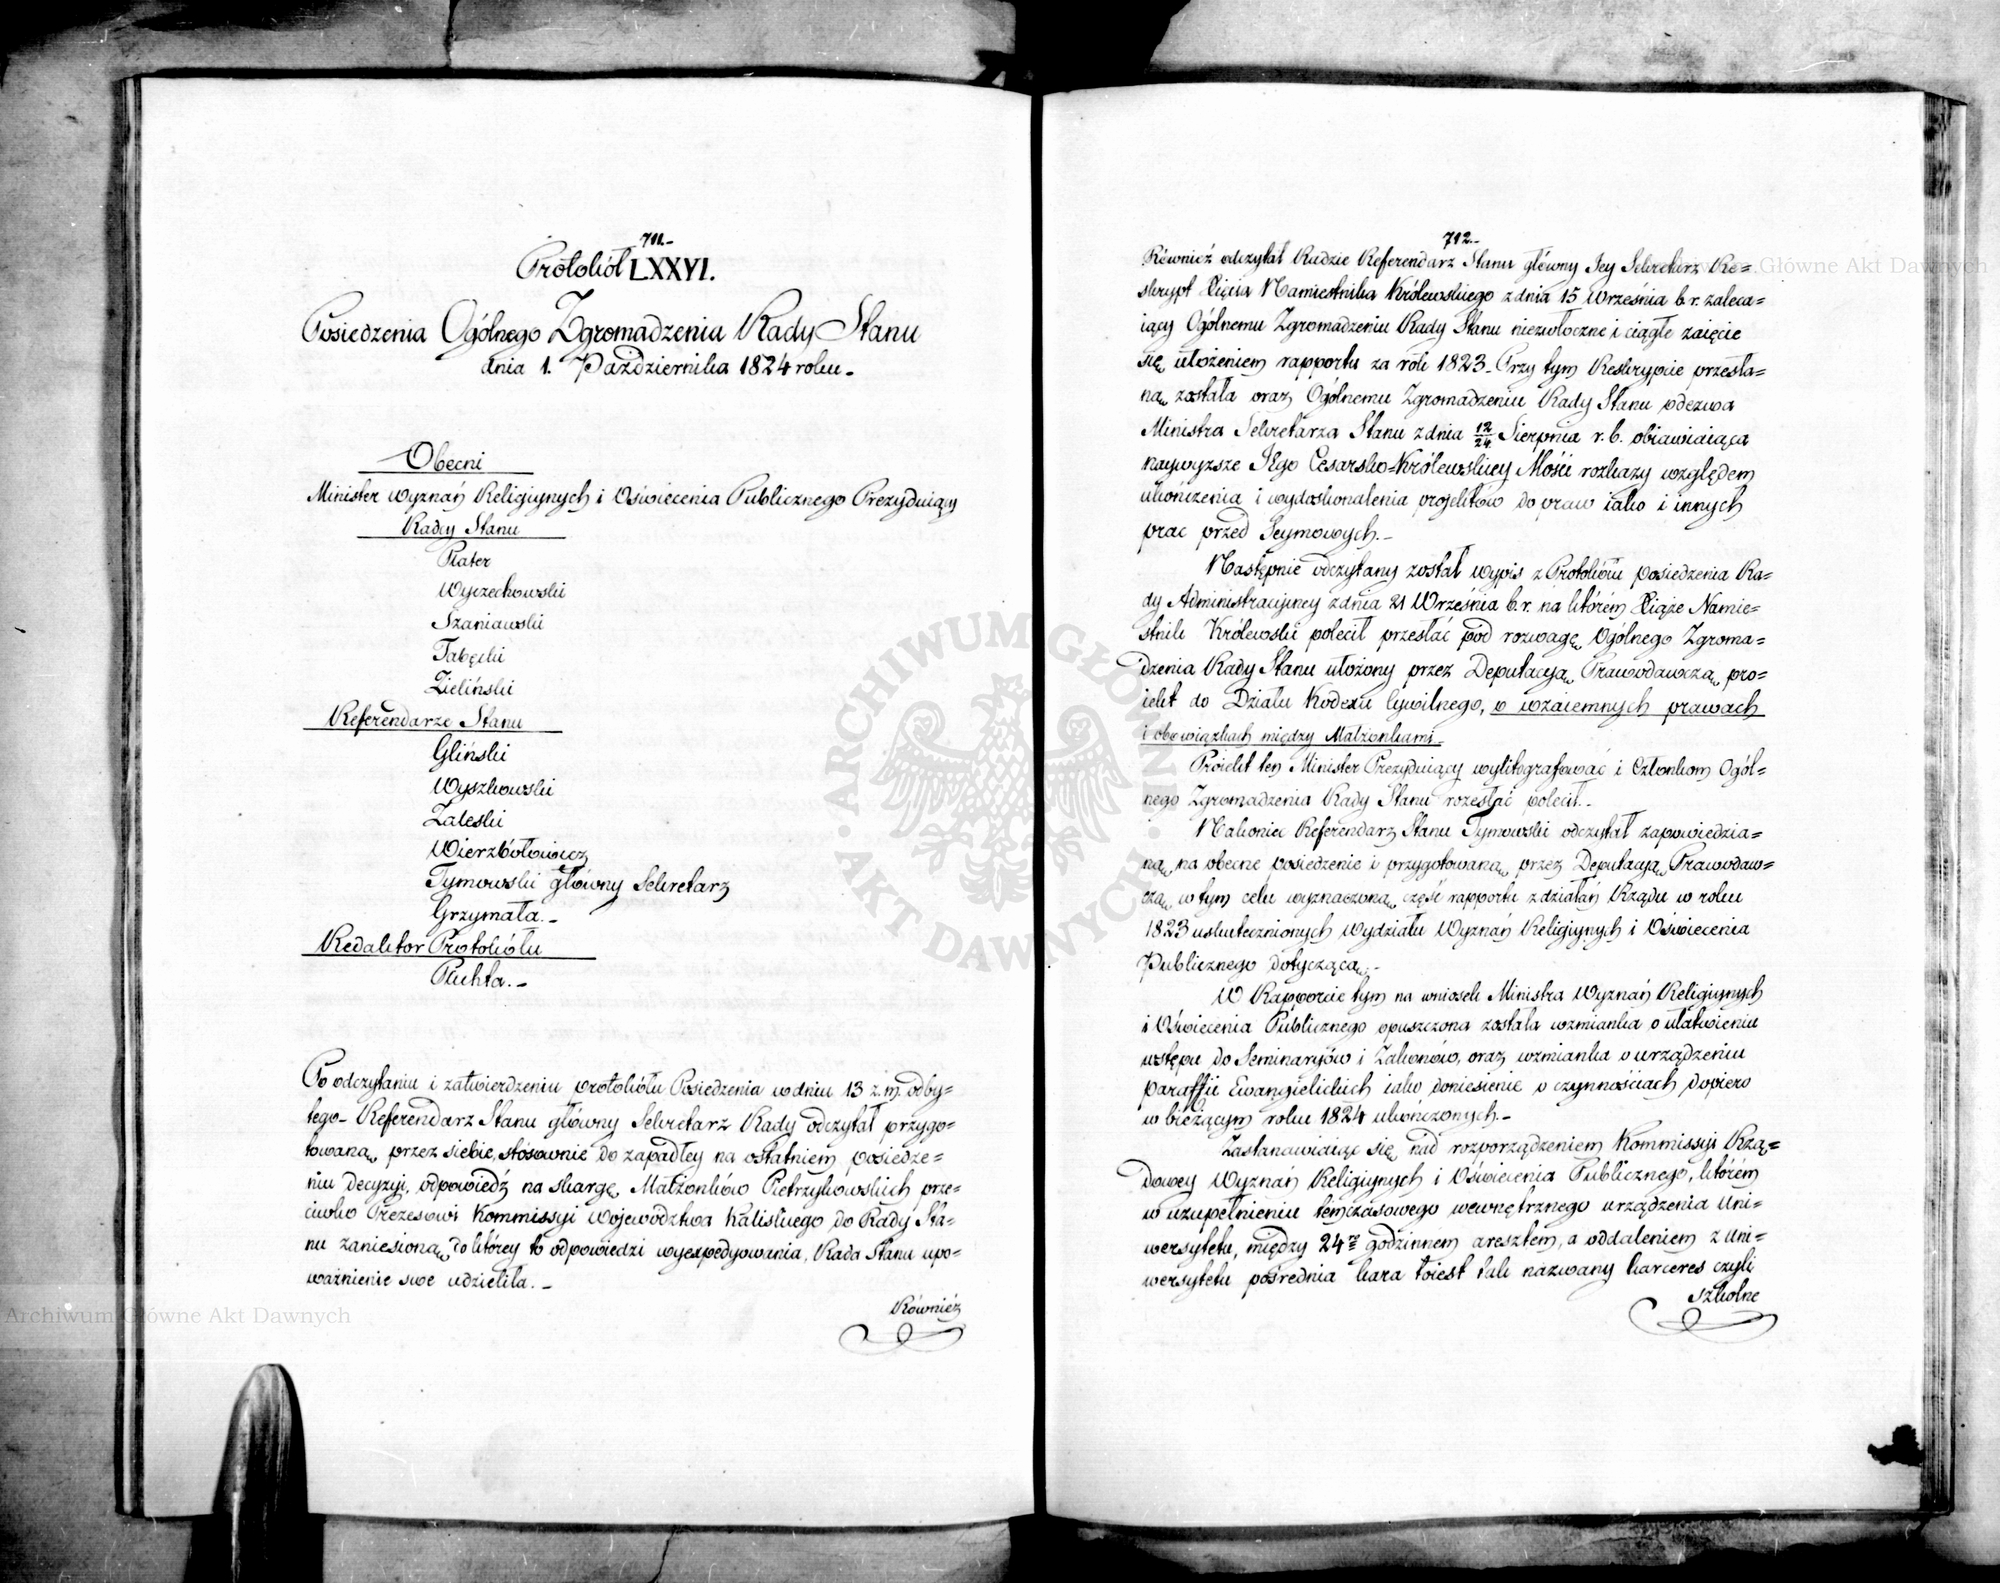 711.-
Protokół LXXVI.
Posiedzenia Ogólnego Zgromadzenia Rady Stanu
dnia 1. Października 1824 roku.-
Obecni
Minister Wyznań Religiynych i Oświecenia Publicznego Prezyduiący
Radcy Stanu
Plater
Wyczechowski
Szaniawski
Tabęcki
Zieliński
Referendarze Stanu
Gliński
Wyszkowski
Zaleski
Wierzbołowicz
Tymowski główny Sekretarz
Grzymała.-
Redaktor Protokółu
Pluhta.-
Po odczytaniu i zatwierdzeniu protokółu Posiedzenia w dniu 13 z. m. odby-
tego - Referendarz Stanu główny Sekretarz Rady odczytał przygo-
towaną przez siebie, stósownie do zapadłey na ostatniem posiedze-
niu decyzyi, odpowiedź na skargę Małżonków Pietrzykowskich prze-
ciwko Prezesowi Kommissyi Województwa Kaliskiego do Rady Sta-
nu zaniesioną, do którey to odpowiedzi wyexpedyowania, Rada Stanu upo-
ważnienie swe udzieliła.-
Również
712.-
Również odczytał Radzie Referendarz Stanu główny Jey Sekretarz Re-
skrypt Xięcia Namiestnika Królewskiego z dnia 15 Września b. r. zaleca-
iący Ogólnemu Zgromadzeniu Rady Stanu niezwłoczne i ciągłe zaięcie
się ułożeniem rapportu za rok 1823 - Przy tym Reskrypcie przesła-
ną została oraz Ogólnemu Zgromadzeniu Rady Stanu odezwa
Ministra Sekretarza Stanu z dnia 12/24 Sierpnia r. b. obiawiaiąca
naywyższe Jego Cesarsko=Królewskiey Mości rozkazy względem
ukończenia i wydoskonalenia projektów do praw iako i innych
prac przed Seymowych.-
Następnie odczytany został wypis z Protokółu posiedzenia Ra-
dy Administracyiney z dnia 21 Września b. r. na którém Xiąże Namie-
stnik Królewski polecił przesłać pod rozwagę Ogólnego Zgroma-
dzenia Rady Stanu ułożony przez Deputacyą Prawodawczą pro-
iekt do Działu Kodexu Cywilnego, o wzaiemnych prawach
i obowiązkach między Małżonkami.-
Proiekt ten Minister Prezyduiący wylitografować i Członkom Ogól-
nego Zgromadzenia Rady Stanu rozesłać polecił.-
Nakoniec Referendarz Stanu Tymowski odczytał zapowiedzia-
ną na obecne posiedzenie i przygotowaną przez Deputacyą Prawodaw-
czą w tym celu wyznaczoną część rapportu z działań Rządu w roku
1823 uskutecznionych Wydziału Wyznań Religiynych i Oświecenia
Publicznego dotyczącą.-
W Rapporcie tym na wniosek Ministra Wyznań Religiynych
i Oświecenia Publicznego opuszczona została wzmianka o ułatwieniu
wstępu do Seminaryów i Zakonów, oraz wzmianka o urządzeniu
paraffii Ewangielickich iako doniesienie o czynnościach dopiero
w bieżącym roku 1824 ukończonych.-
Zastanawiaiąc się nad rozporządzeniem Kommissyi Rzą=
dowey Wyznań Religiynych i Oświecenia Publicznego, którém
w uzupełnieniu tymczasowego wewnętrznego urządzenia Uni-
wersytetu, między 24ro godzinnem aresztem, a oddaleniem z Uni-
wersytetu pośrednia kara toiest tak nazwany karceres czyli
szkolne
Archiwum Główne Akt Dawnych
Archiwum Główne Akt Dawnych
ARCHIWUM GŁÓWNE AKT DAWNYCH